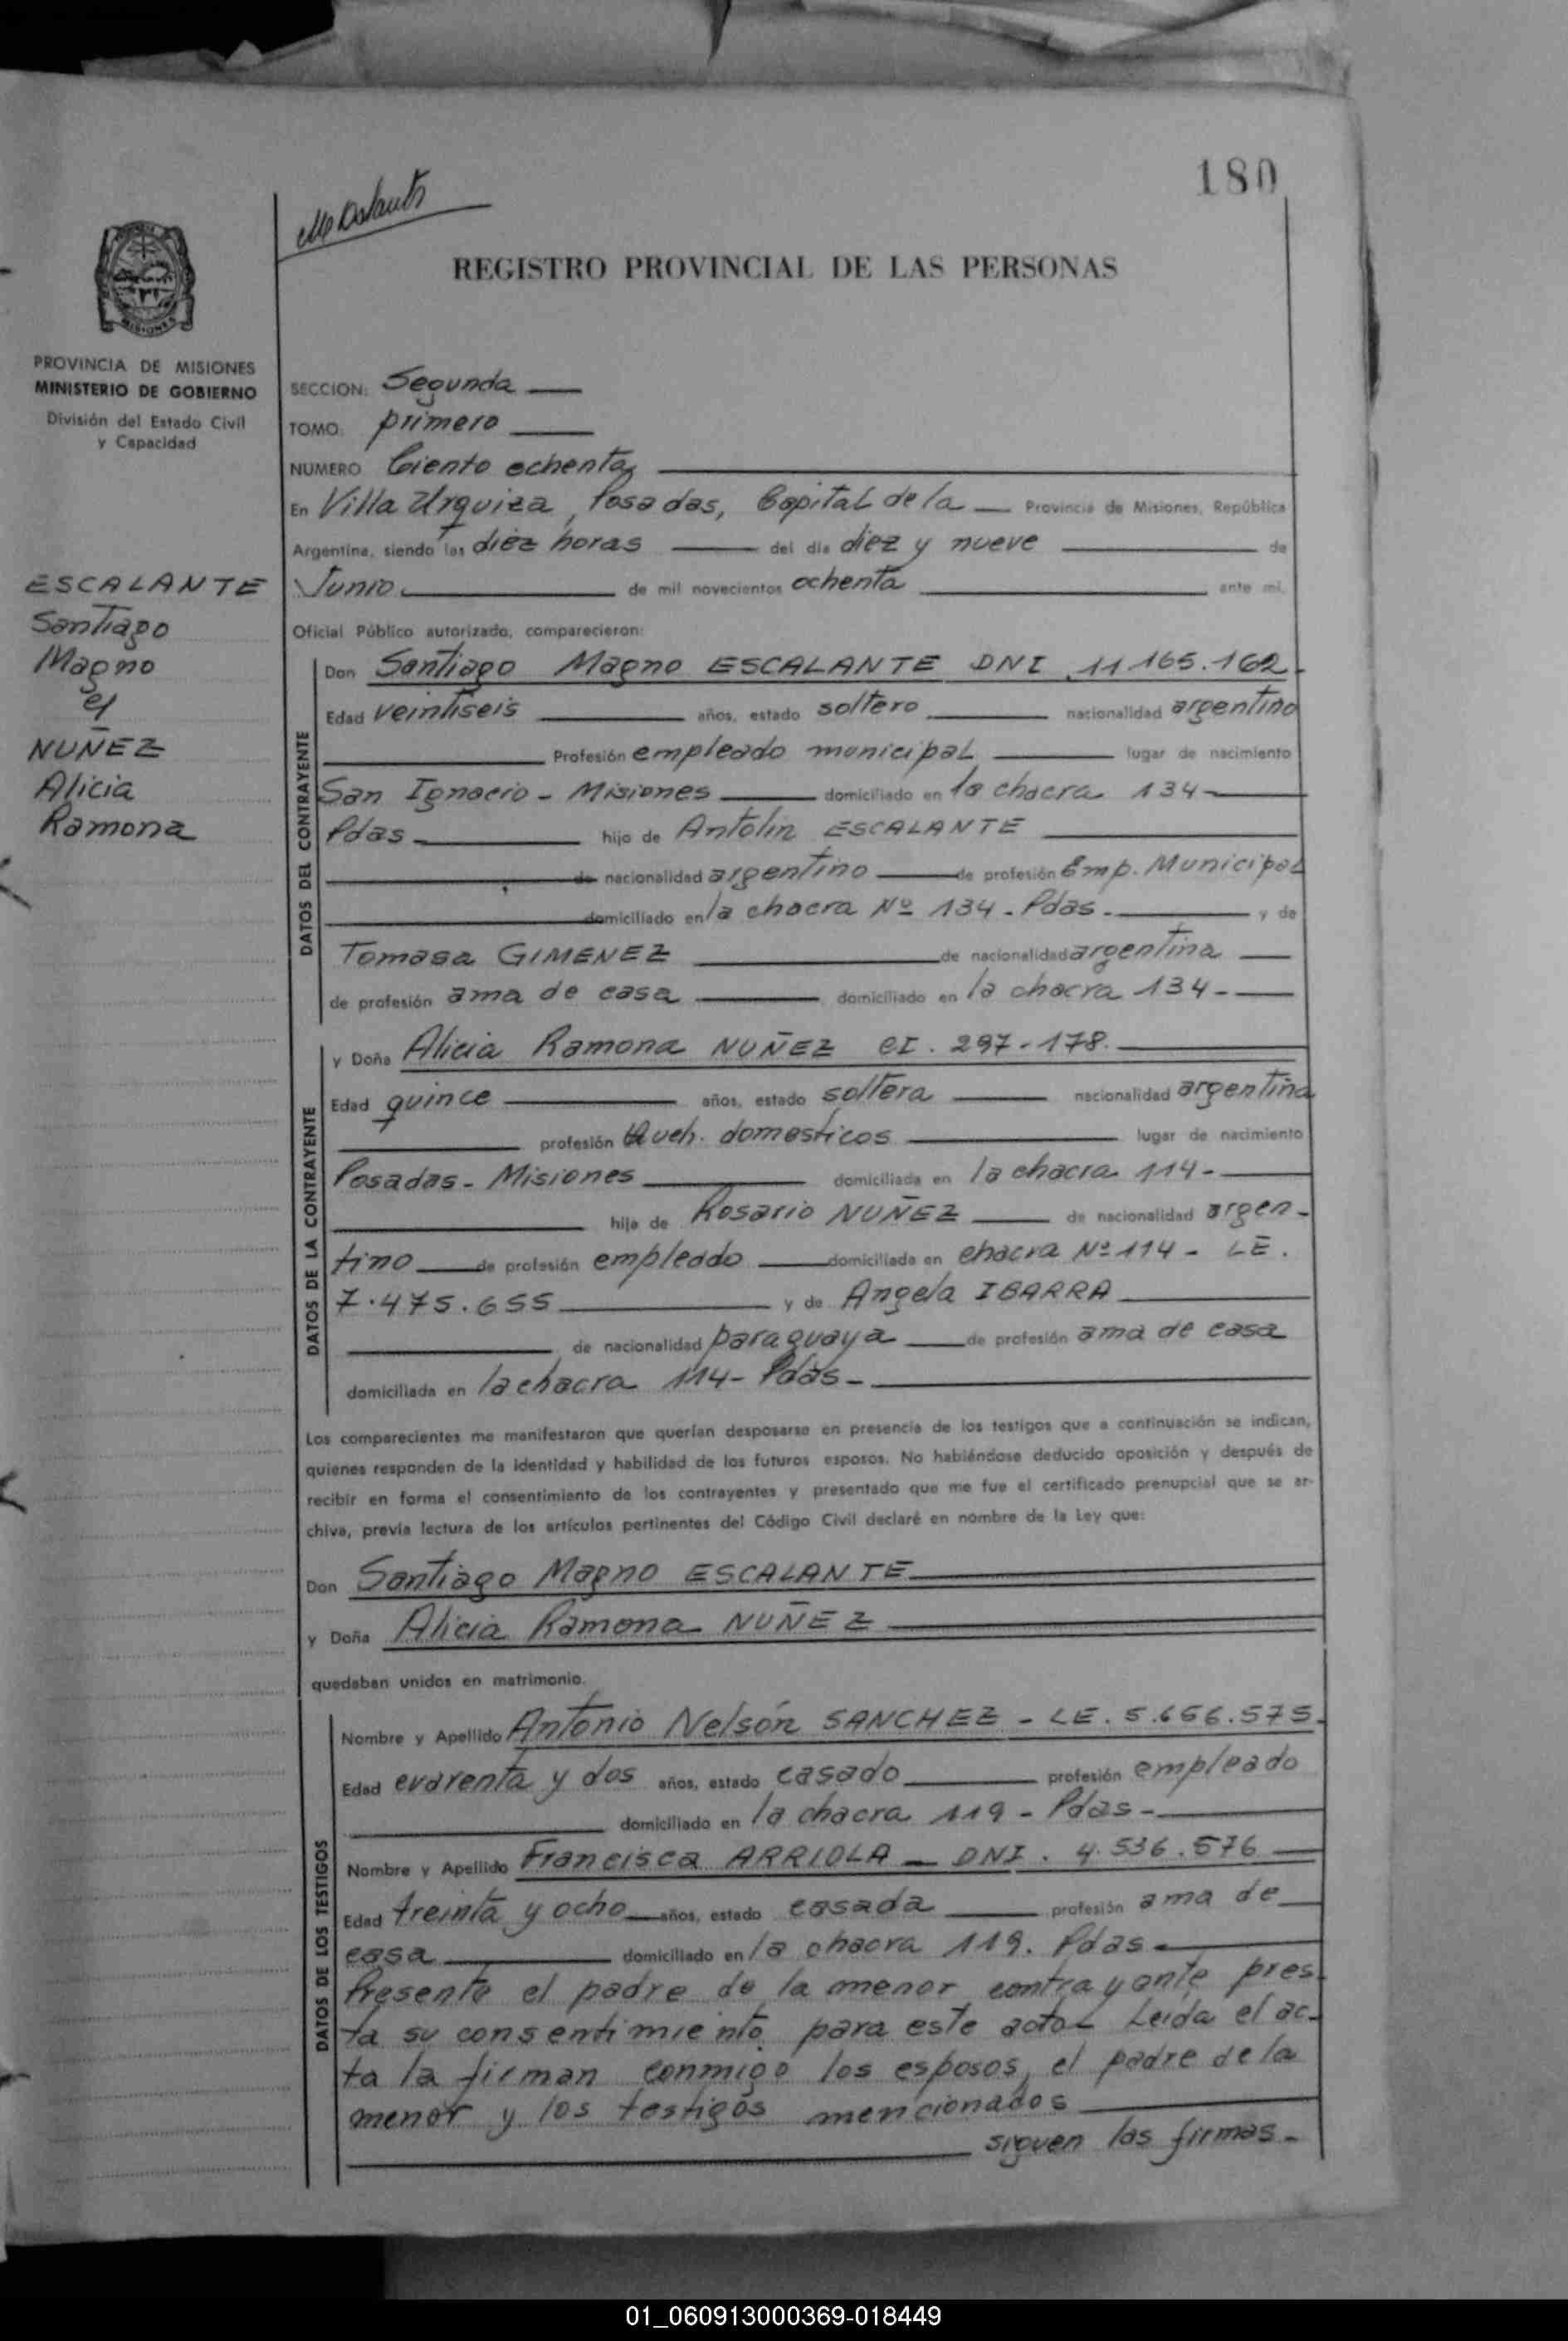 180
REGISTRO PROVINCIAL DE LAS PERSONAS
MISIONES
PROVINCIA DE MISIONES
MINISTERIO DE GOBIERNO
División del Estado Civil
y Capacidad
ESCALANTE
Santiago
Magno
NUÑEZ
Alicia
Ramona
SECCION: Segunda
TOMO: primero
NUMERO Ciento ochenta
En Villa Urquiza, Posadas, Capital de la Provincia de Misiones, República
Argentina, siendo las diez horas del día diez y nueve de
Junio de mil novecientos ochenta ante mí,
Oficial Público autorizado, comparecieron:
DATOS DEL CONTRAYENTE
Don Santiago Magno ESCALANTE DNI 11.165.162
Edad veintiseis años, estado soltero nacionalidad argentino
Profesión empleado municipal lugar de nacimiento
San Ignacio - Misiones domiciliado en la chacra 134-
Pdas hijo de Antolin ESCALANTE
de nacionalidad argentino de profesión Emp. Municipal
domiciliado en la chacra Nº 134- Pdas. y de
Tomasa GIMENEZ de nacionalidad argentina
de profesión ama de casa domiciliado en la chacra 134-
DATOS DE LA CONTRAYENTE
y Doña Alicia Ramona NUÑEZ CI. 297-178.
Edad quince años, estado soltera nacionalidad argentina
profesión Queh. domesticos lugar de nacimiento
Posadas- Misiones domiciliada en la chacra 114-
hija de Rosario NUÑEZ de nacionalidad argen-
tino de profesión empleado domiciliada en chacra Nº 114- LE.
7.475.655 y de Angela IBARRA
de nacionalidad paraguaya de profesión ama de casa
domiciliada en la chacra 114- Pdas-
Los comparecientes me manifestaron que querían desposarse en presencia de los testigos que a continuación se indican,
quienes responden de la identidad y habilidad de los futuros esposos. No habiéndose deducido oposición y después de
recibir en forma el consentimiento de los contrayentes y presentado que me fue el certificado prenupcial que se ar-
chiva, previa lectura de los artículos pertinentes del Código Civil declaré en nombre de la Ley que:
Don Santiago Magno ESCALANTE
y Doña Alicia Ramona NUÑEZ
quedaban unidos en matrimonio.
DATOS DE LOS TESTIGOS
Nombre y Apellido Antonio Nelsón SANCHEZ - LE. 5.656.575.
Edad cuarenta y dos años, estado casado profesión empleado
domiciliado en la chacra 119- Pdas-
Nombre y Apellido Francisca ARRIOLA - DNI. 4.536.576
Edad treinta y ocho años, estado casada profesión ama de
casa domiciliado en la chacra 119. Pdas-
Presente el padre de la menor contrayente pres-
ta su consentimiento para este acto- Leida el ac-
ta la firman conmigo los esposos, el padre de la
menor y los testigos mencionados
siguen las firmas-
01_060913000369-018449